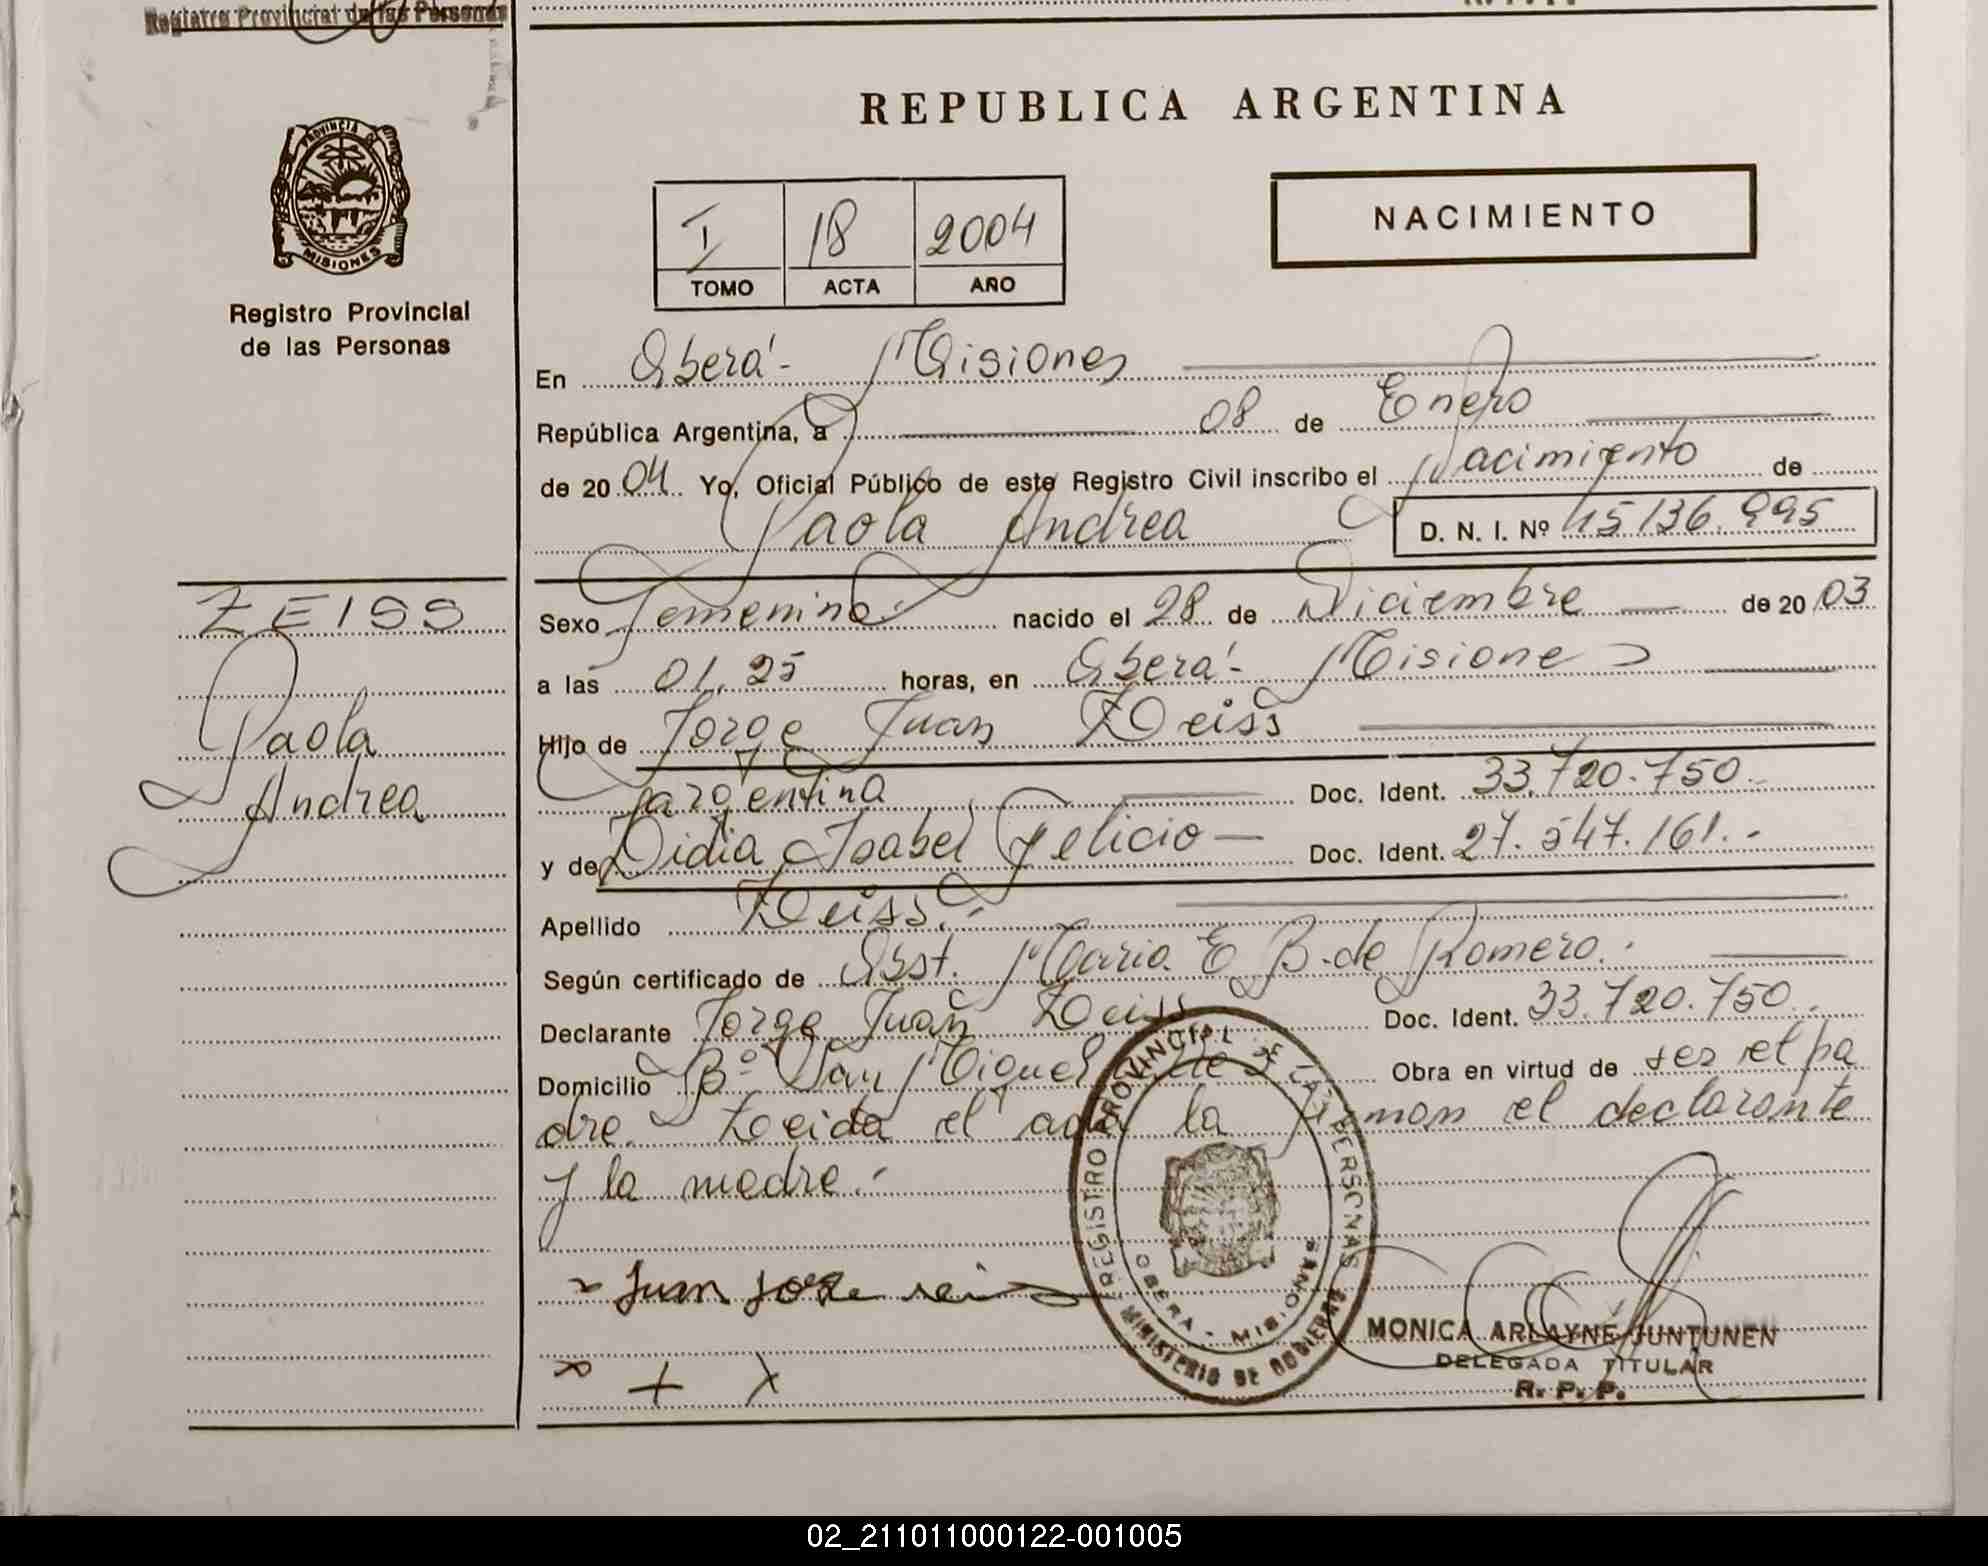 Registro Provincial de las Personas
REPUBLICA ARGENTINA
PROVINCIA DE
MISIONES
Registro Provincial
de las Personas
I 18 2004
TOMO ACTA AÑO
NACIMIENTO
En Oberá - Misiones
República Argentina, a 08 de Enero
de 2004. Yo, Oficial Público de este Registro Civil inscribo el Nacimiento de
Paola Andrea D. N. I. Nº 45136.995
ZEISS
Paola
Andrea
Sexo Femenino.- nacido el 28 de Diciembre de 2003
a las 01.25 horas, en Oberá - Misiones
Hijo de Jorge Juan Zeiss
argentina Doc. Ident. 33.720.750.-
y de Lidia Isabel Felicio Doc. Ident. 27.547.161.-
Apellido Zeiss.-
Según certificado de Obst. Maria E B. de Romero.-
Declarante Jorge Juan Zeiss Doc. Ident. 33.720.750.
Domicilio Bº San Miguel Obra en virtud de ser el pa
dre. Leida el acta la firman el declarante
y la madre.-
REGISTRO PROVINCIAL DE LAS PERSONAS
OBERA - MISIONES
MINISTERIO DE GOBIERNO
MONICA ARLAYNE JUNTUNEN
DELEGADA TITULAR
R. P. P.
02_211011000122-001005